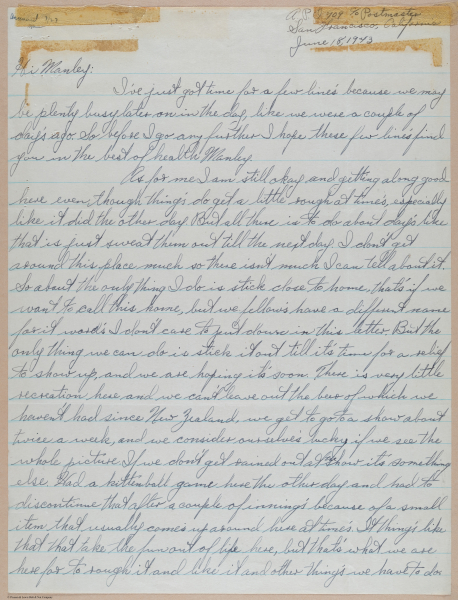 A.P.O. 709 % Postmaster
San Francisco, California
June 18, 1943
Hi Manley:
I've just got time for a few lines because we may
be plenty busy later on in the day, like we were a couple of
days ago. So before I go any further I hope these few lines find
you in the best of health Manley.
As for me I am still okay and getting along good
here even though things do get a little rough at times, especially
like it did the other day. But all there is to do about days like
that is just sweat them out till the next day. I don't get
around this place much so there isn't much I can tell about it.
So about the only thing I do is stick close to home, that's if we
want to call this home, but we fellows have a different name
for it words I don't care to put down in this letter. But the
only thing we can do is stick it out till it's time for a relief
to show up, and we are hoping it's soon. There is very little
recreation here and we can't leave out the beer of which we
haven't had since New Zealand, we get to go to a show about
twice a week, and we consider ourselves lucky if we see the
whole picture. If we don't get rained out at show it's something
else. Had a kittinball game here the other day and had to
discontinue that after a couple of innings because of a small
item that usually comes up around here at times. It things like
that that take the fun out of life here, but that's what we are
here for to rough it and like it and other things we have to do.